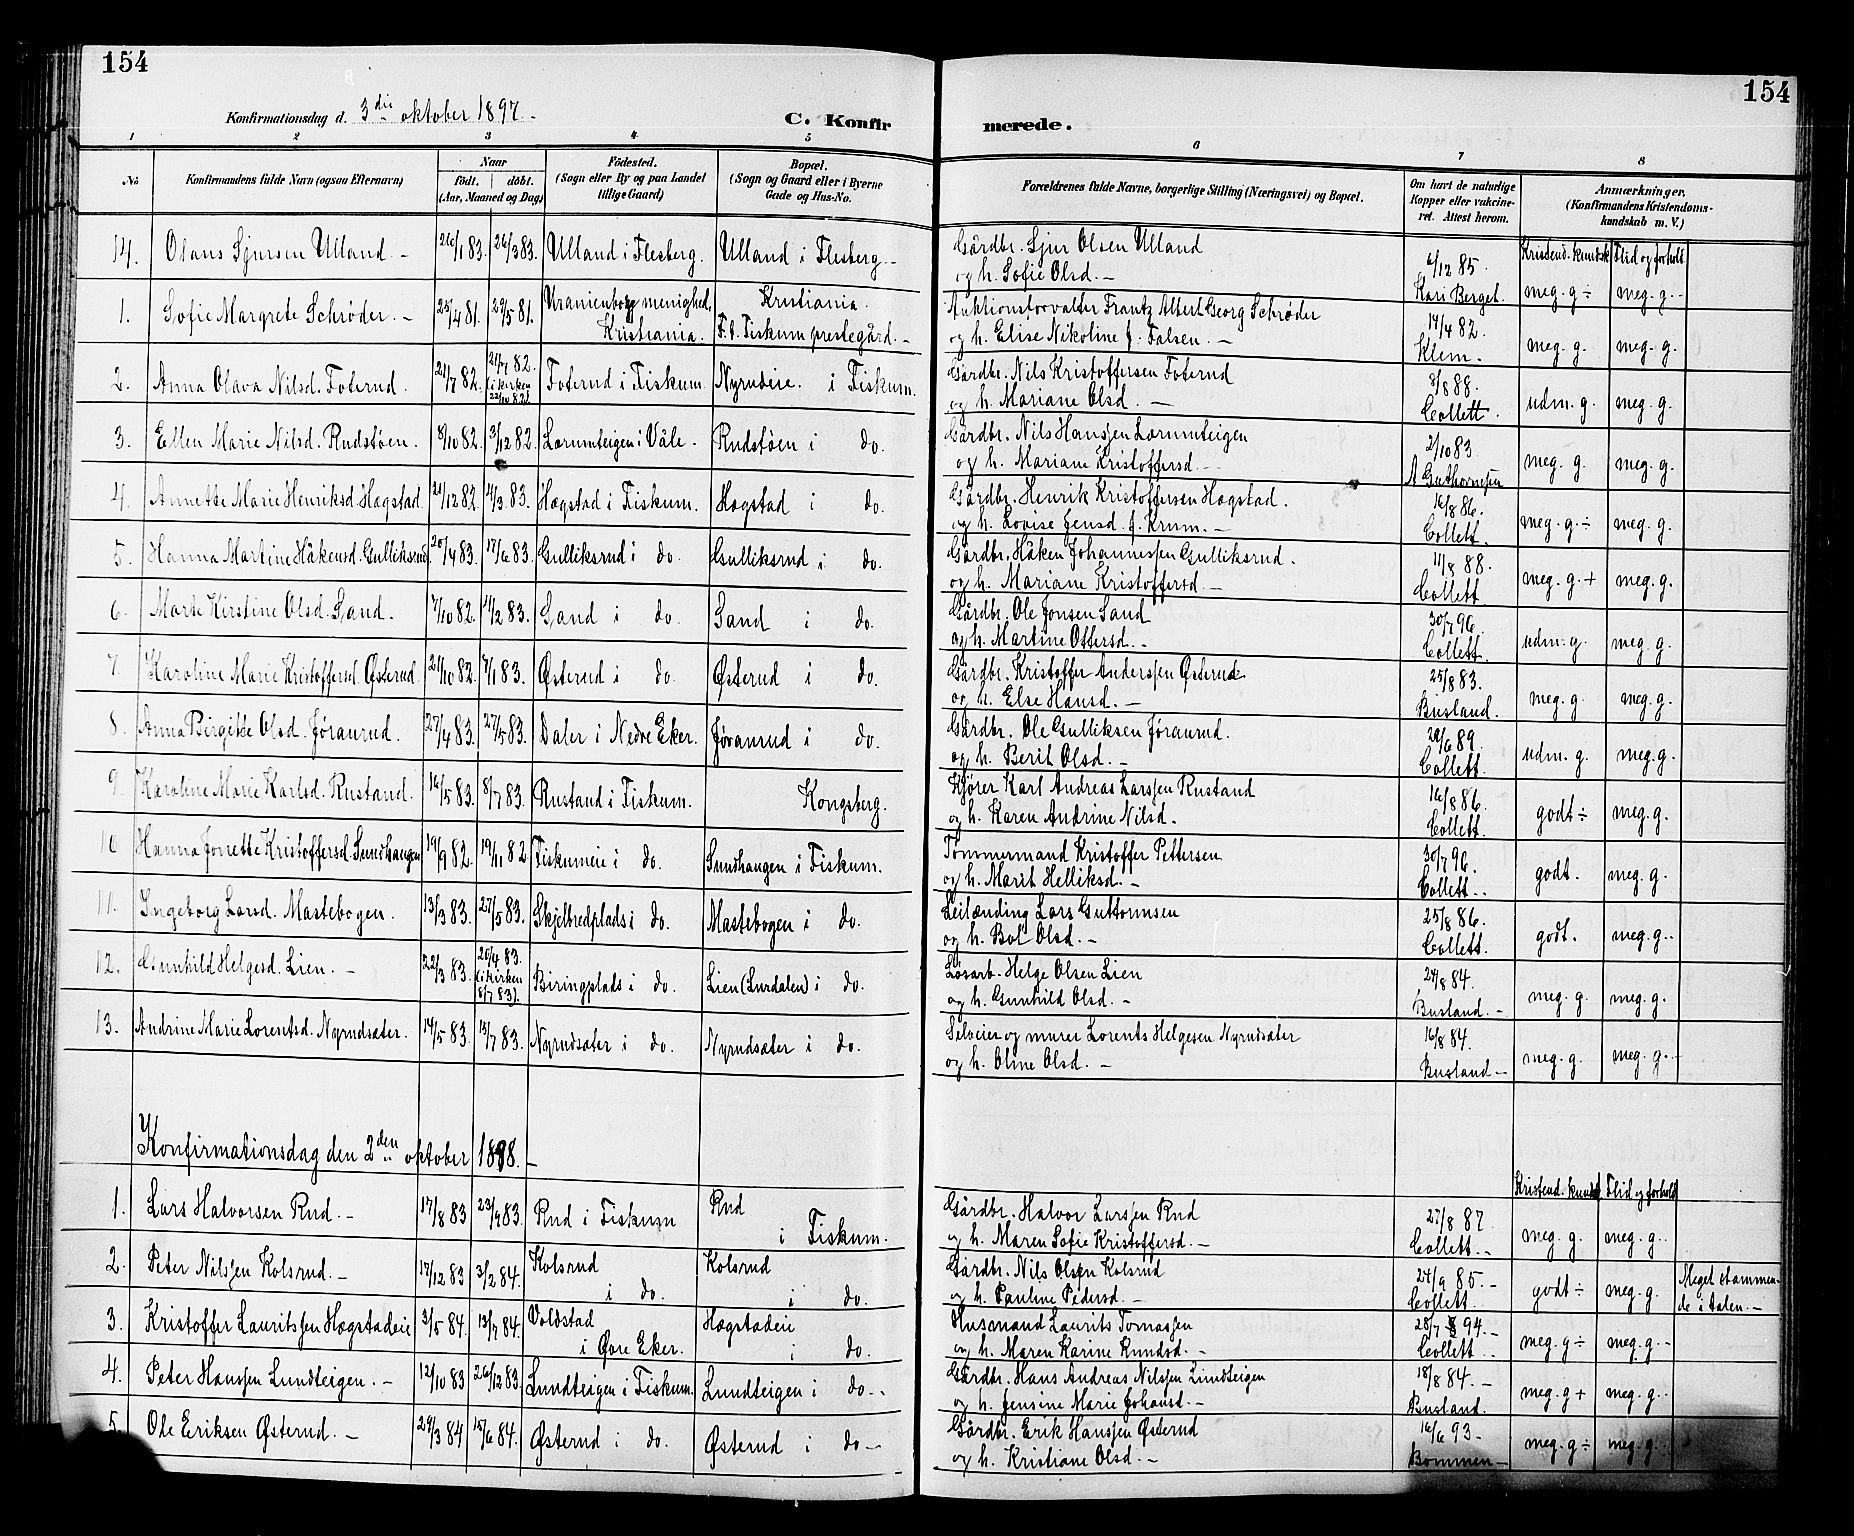 154
154
Konfirmationsdag d. 3die oktober 1897.-
C. Konfirmerede.
1 2 3 4 5 6 7 8
No
Konfirmandens fulde Navn (ogsaa Efternavn)
Naar
født. døbt.
(Aar, Maaned og Dag)
Fødested.
(Sogn eller By og paa Landet
tillige Gaard)
Bopæl.
(Sogn og Gaard eller i Byerne
Gade og Hus-No.
Forældrenes fulde Navne, borgerlige Stilling (Næringsvei) og Bopæl.
Om havt de naturlige
Kopper eller vakcine-
ret. Attest herom.
Anmærkninger,
(Konfirmandens Kristendoms-
kundskab m. V.)
Kristend. kundsk. Flid og forhold
14. Olaus Sjursen Ulland. - 26/1 83. 26/3 83. Ulland i Flesberg. Ulland i Flesberg. - Gårdbr. Sjur Olsen Ulland 6/12 85.
og h. Sofie Olsd. - Kari Berget. meg. g ÷ meg. g. -
1. Sofie Margrete Schrøder. - 25/4 81. 29/5 81. Uranienborg menighed, Kristiania. Auktionsforvalter Frantz Albert Georg Schrøder 14/4 82.
Kristiania. F. t. Fiskum prestegård. - og h. Elise Nikoline f. Falsen. - Klem. meg. g. meg. g.
2. Anna Olava Nilsd. Foterud. 21/7 82. 21/7 82. (i kirken 22/10 82). Foterud i Fiskum. Nyrudeie. i Fiskum. Gårdbr. Nils Kristoffersen Foterud 8/8 88.
og h. Mariane Olsd. - Collett. udm. g. meg. g.
3. Ellen Marie Nilsd. Rudstøen. 8/10 82. 3/12 82. Lorumteigen i Våle. Rudstøen i do. Gårdbr. Nils Hanssen Lorumteigen 2/10 83
og h. Mariane Kristoffersd. - A Guthormsen meg. g. meg. g.
4. Annette Marie Henriksd. Hogstad. 21/12 82. 4/3 83. Hogstad i Fiskum. Hogstad i do. Gårdbr. Henrik Kristoffersen Hogstad. 16/8 86.
og h. Lovise Jensd. f. Krum. - Collett. meg. g. ÷ meg. g.
5. Hanna Martine Håkensd. Gulliksrud. 20/4 83. 17/6 83. Gulliksrud i do. Gulliksrud i do. Gårdbr. Håken Johannessen Gulliksrud. 11/8 88.
og h. Mariane Kristoffersd. - Collett. meg. g. + meg. g.
6. Marte Kirstine Olsd. Sand. 7/10 82. 11/2 83. Sand i do. Sand i do. Gårdbr. Ole Jonsen Sand 30/7 96.
og h. Martine Ottersd. - Collett. udm. g. meg. g.
7. Karoline Marie Kristoffersd. Østerud. 21/10 82. 7/1 83. Østerud i do. Østerud i do. Gårdbr. Kristoffer Anderssen Østerud 25/8 83.
og h. Else Hansd. - Busland. meg. g. meg. g.
8. Anna Birgitte Olsd. Jøranrud. 27/4 83. 27/5 83. Daler i Nedre Eker. Jøranrud i do. Gårdbr. Ole Gulliksen Jøranrud. 29/6 89.
og h. Berit Olsd. - Collett. udm. g. meg. g.
9. Karoline Marie Karlsd. Rustand. 16/5 83. 8/7 83. Rustand i Fiskum. Kongsberg. Kjører Karl Andreas Larssen Rustand 16/8 86.
og h. Karen Andrine Nilsd. Collett. godt ÷ meg. g.
10 Hanna Jonette Kristoffersd. Sundhangen 19/9 82. 19/11 82 Fiskumeie i do. Sundhangen i Fiskum. Tømmermand Kristoffer Pettersen 30/7 96.
og h. Marit Helliksd. - Collett. - godt. meg. g.
11. Ingeborg Larsd. Mastebogen. 13/3 83. 27/5 83. Skjelbredplads i do. Mastebogen i do. Leilænding Lars Guttormsen 25/8 86.
og h. Bol Olsd. - Collett. godt. meg. g.
12. Gunhild Helgesd. Lien. - 22/3 83. 20/4 83. (i kirken 8/7 83). Biringplads i do. Lien (Lurdalen) i do. Løsarb. Helge Olsen Lien 24/8 84.
og h. Gunhild Olsd. - Busland. - meg. g. meg. g.
13. Andrine Marie Lorentsd. Nyrudsæter. 14/5 83. 13/7 83. Nyrudsæter i do. Nyrudsæter i do. Selveier og murer Lorents Helgesen Nyrudsæter 16/8 84.
og h. Oline Olsd. - Busland - meg. g. meg. g. -
Konfirmationsdag den 2den oktober 1898. -
Kristend. kundsk. Flid og forhold
1. Lars Halvorsen Rud. - 17/8 83 23/9 83. Rud i Fiskum Rud Gårdbr. Halvor Larssen Rud 27/8 87.
i Fiskum. og h. Maren Sofie Kristoffersd. - Collett. - meg. g. meg. g. -
2. Peter Nilssen Kolsrud. - 17/12 83 3/2 84. Kolsrud Kolsrud Gårdbr. Nils Olsen Kolsrud 24/9 85. - Meget stammen-
i do. i do. og h. Pauline Pedersd. - Collett. godt ÷ meg. g. de i talen. -
3. Kristoffer Lauritssen Hogstadeie 3/5 84. 13/7 84. Voldstad Hogstadeie Husmand Laurits Tomassen 28/7 94. -
i Øvre Eker. i do. og h. Maren Karine Knudsd. - Collett. - meg. g ÷ meg. g. -
4. Peter Hanssen Lundteigen. - 12/10 83 26/12 83. Lundteigen i Fiskum. Lundteigen i do. - Gårdbr. Hans Andreas Nilssen Lundteigen 18/8 84. -
og h. Jensine Marie Johansd. - Busland. meg. g + meg. g. -
5. Ole Eriksen Østerud. - 29/3 84 15/6 84. Østerud i do. Østerud i do - Gårdbr. Erik Hanssen Østerud 16/6 93 -
og h. Kristiane Olsd. - Bommen - meg. g ÷ meg. g. -